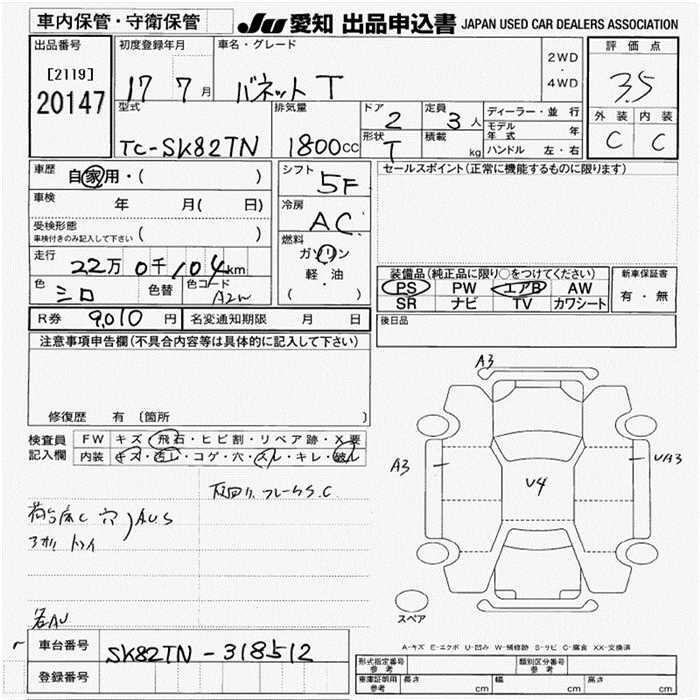 車内保管・守衛保管
JU 愛知 出品申込書 JAPAN USED CAR DEALERS ASSOCIATION
出品番号
[2119]
20147
初度登録年月
17 7 月
車名・グレード
バネット T
2WD
・
4WD
評価点
3.5
外装 内装
C C
型式
TC-SK82TN
排気量
1800cc
ドア
2
形状
T
定員
3人
積載
kg
ディーラー・並行
モデル年式 年
ハンドル 左・右
車歴
自家用・( )
車検
年 月( 日)
受検形態
車検付きのみ記入して下さい ( )
走行
22万 0千 104km
色
シロ
色替
色コード
A2W
シフト
5F
冷房
AC
燃料
ガソリン
軽・油
( )
セールスポイント(正常に機能するものに限ります)
装備品(純正品に限り○をつけてください)
PS PW エアB AW
SR ナビ TV カワシート
新車保証書
有・無
後日品
R券 9,010 円 名変通知期限 月 日
注意事項申告欄(不具合内容等は具体的に記入して下さい)
修復歴 有 〔箇所 〕
検査員記入欄
FW キズ・飛石・ヒビ割・リペア跡・X要
内装 キズ・汚レ・コゲ・穴・スレ・キレ・破レ
下回リ、フレームS.C
荷台床C 穴
AUS
アオリ
各AU
A3
A3
UA3
V4
スペア
A-キズ E-エクボ U-凹み W-補修跡 S-サビ C-腐食 XX-交換済
車台番号 SK82TN-318512
登録番号
形式指定番号 参考
類別区分番号 参考
車庫証明用 参考 長さ cm 幅 cm 高さ cm